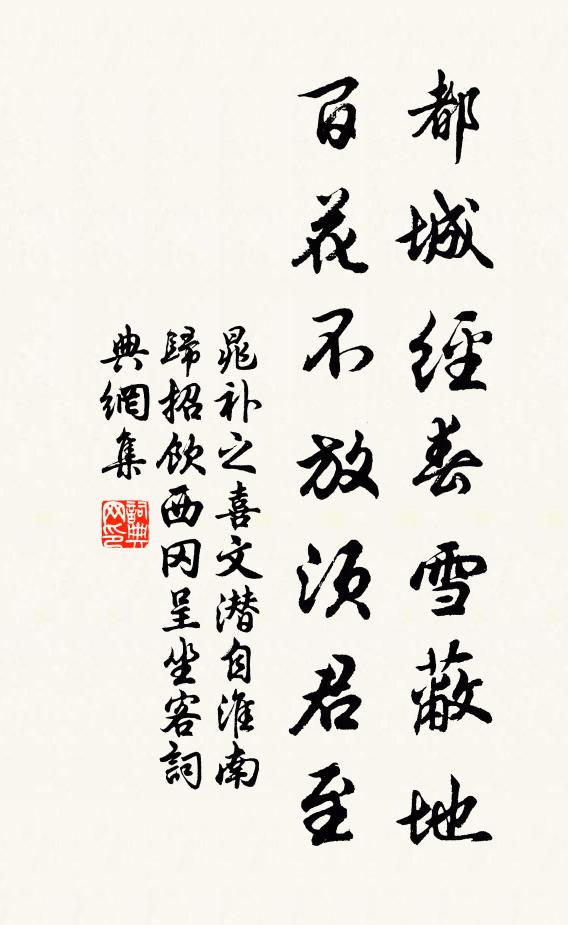 都城經春雪蔽地
百花不放須君至
晁补之喜文潜自淮南
歸招飲西冈呈坐客詞
典網集
詞典
网印